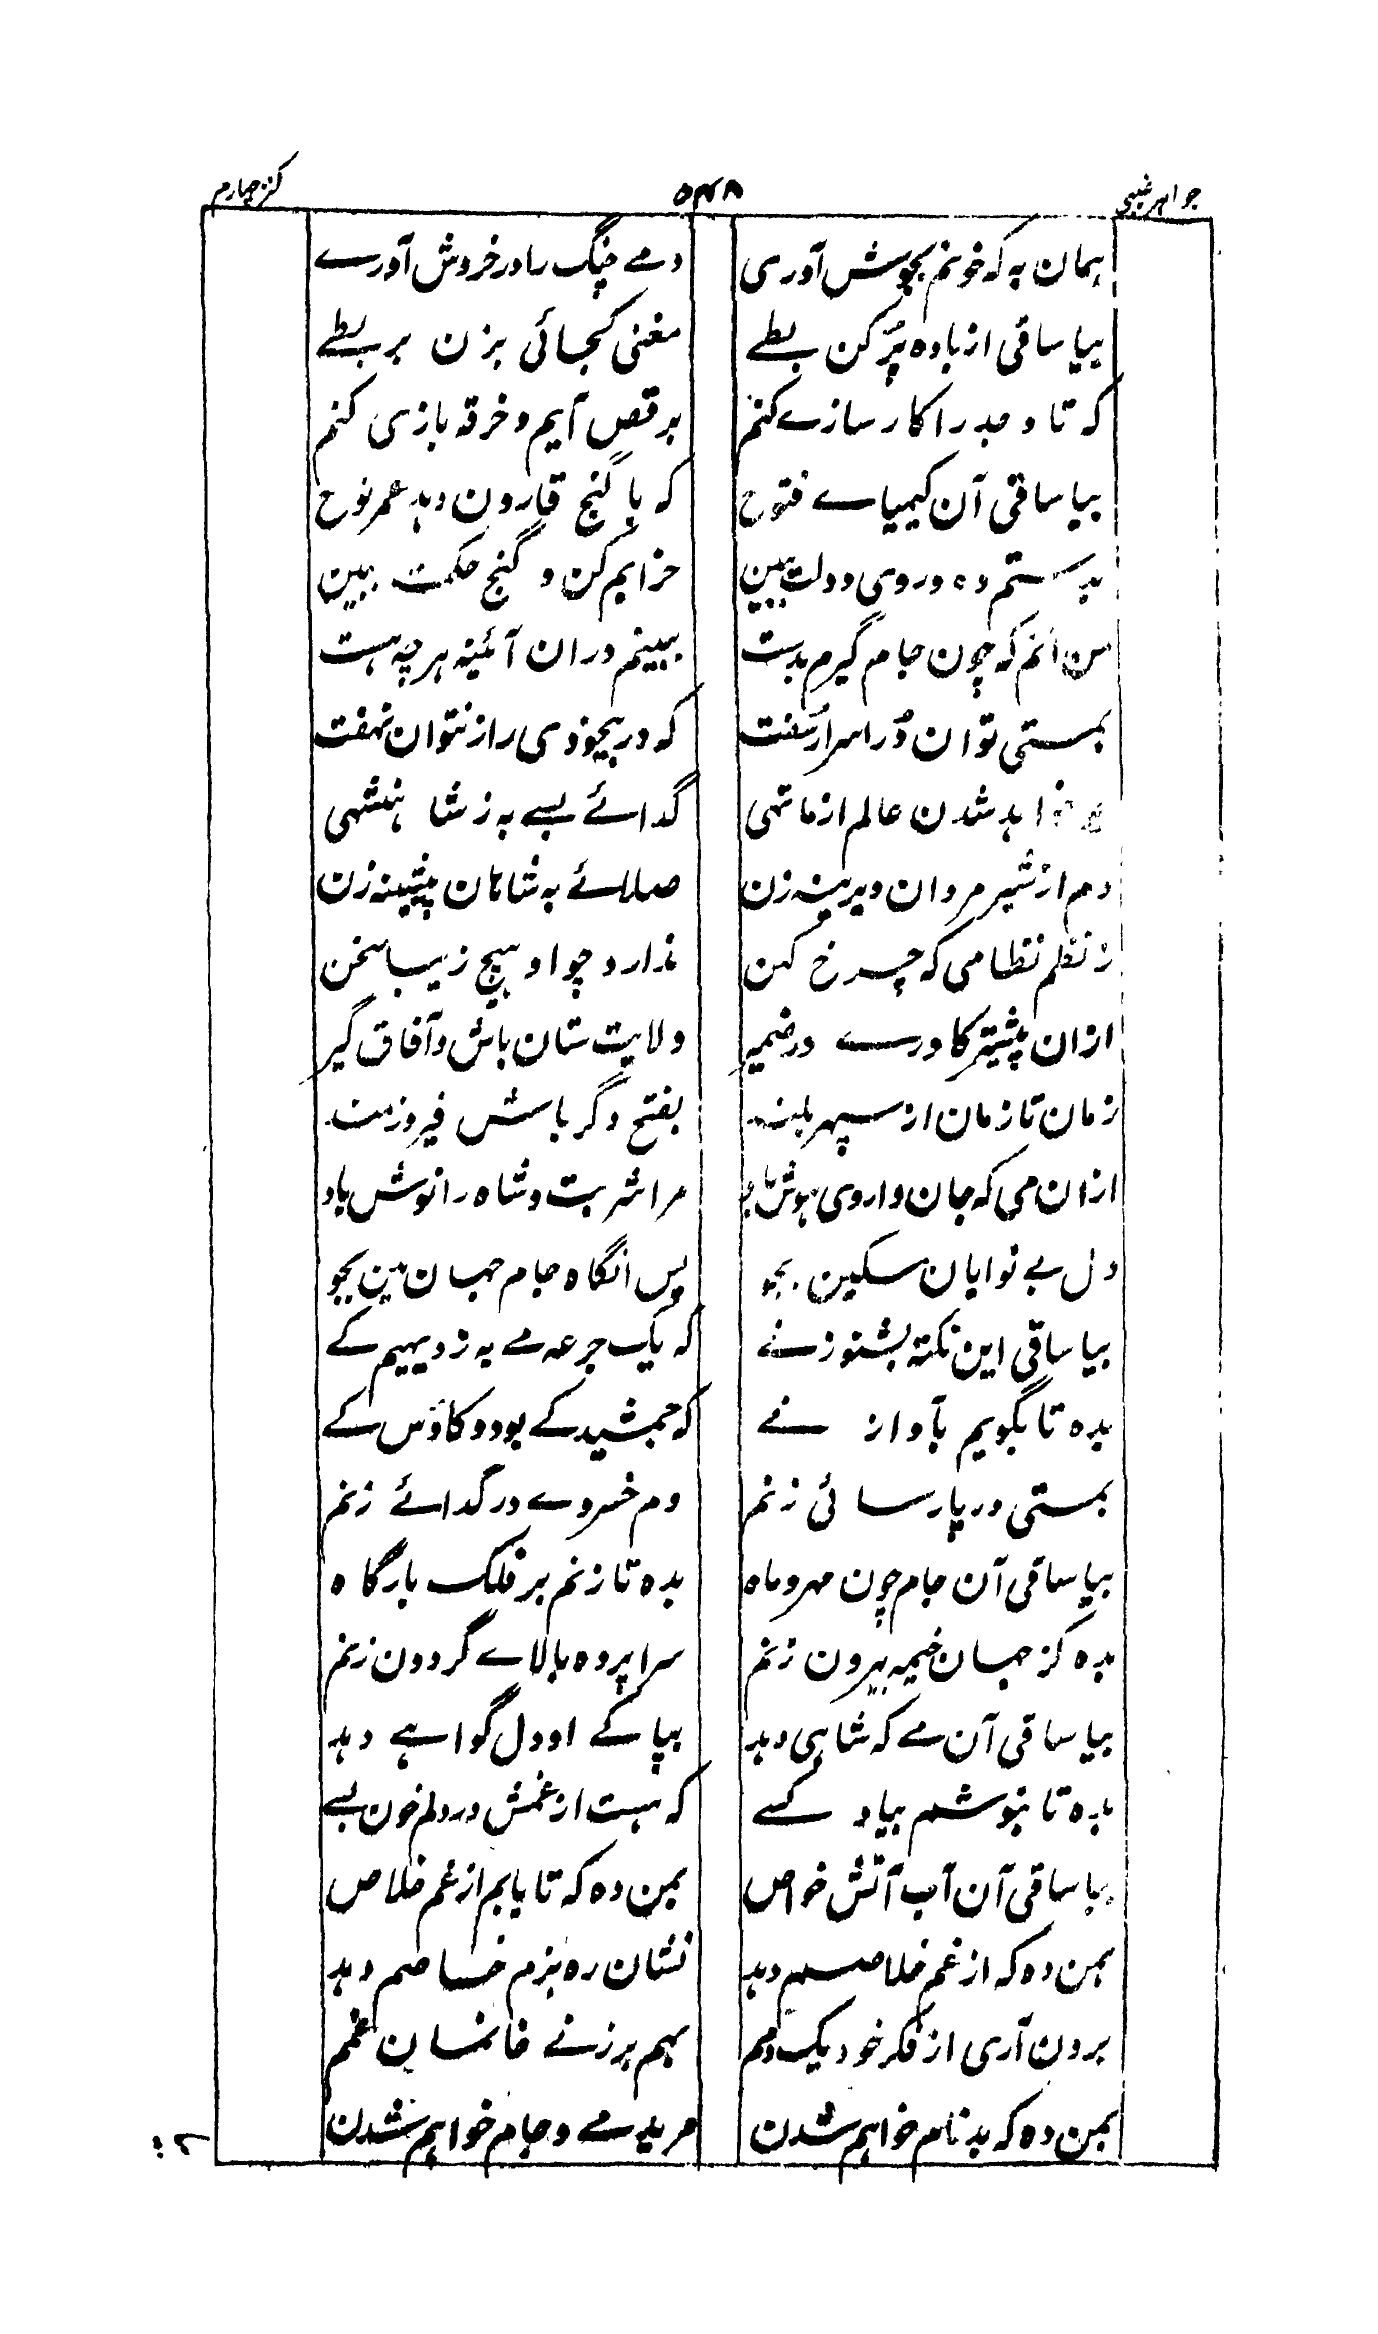 جواهر غیبی ۵۴۸ کنز چهارم
همان به که خونم بجوش آوری دمے چنگ را در خروش آورے
بیا ساقی از باده پُر کن بطے مغنی کجائی بزن بربطے
که تا وجد را کار سازے کنم برقص آیم و خرقه بازی کنم
بیا ساقی آن کیمیاے فتوح که با گنج قارون دهد عمر نوح
بدستم ده و روی دولت ببین خرابم کن و گنج حکمت ببین
من آنم که چون جام گیرم بدست ببینم دران آئینه هرچه هست
بمستی توان دُر اسرار سُفت که در بیخودی راز نتوان نهفت
خواهد شدن عالم از ما تهی گدائے بسے به ز شاهنشهی
دم از شیر مردان دیرینه زن صلائے به شاهان پیشینه زن
ز نظم نظامی که چرخ کهن ندارد چو او هیچ زیبا سخن
ازان پیشتر کاورے در ضمیر ولایت ستان باش و آفاق گیر
زمان تا زمان از سپهر بلند بفتح دگر باش فیروزمند
ازان می که جان داروی هوش باد مرا شربت و شاه را نوش باد
دل بے نوایان مسکین بجو پس انگاه جام جهان بین بجو
بیا ساقی این نکته بشنو ز نے که یک جرعه مے به ز دیهیم کے
بده تا بگویم بآواز نے که جمشید کے بود و کاؤس کے
بمستی در پارسائی زنم دم خسروے در گدائے زنم
بیا ساقی آن جام چون مهر و ماه بده تا زنم بر فلک بارگاه
بده کز جهان خیمه بیرون زنم سراپرده بالاے گردون زنم
بیا ساقی آن مے که شاهی دهد بپاکے او دل گواهے دهد
بده تا بنوشم بیاد کسے که هست از غمش در دلم خون بسے
بیا ساقی آن آب آتش خواص بمن ده که تا یابم از غم خلاص
بمن ده که از غم خلاصم دهد نشان ره بزم خاصم دهد
برون آری از فکر خود یک دمم بهم برزنے خانمان غمم
بمن ده که بدنام خواهم شدن مرید مے و جام خواهم شدن